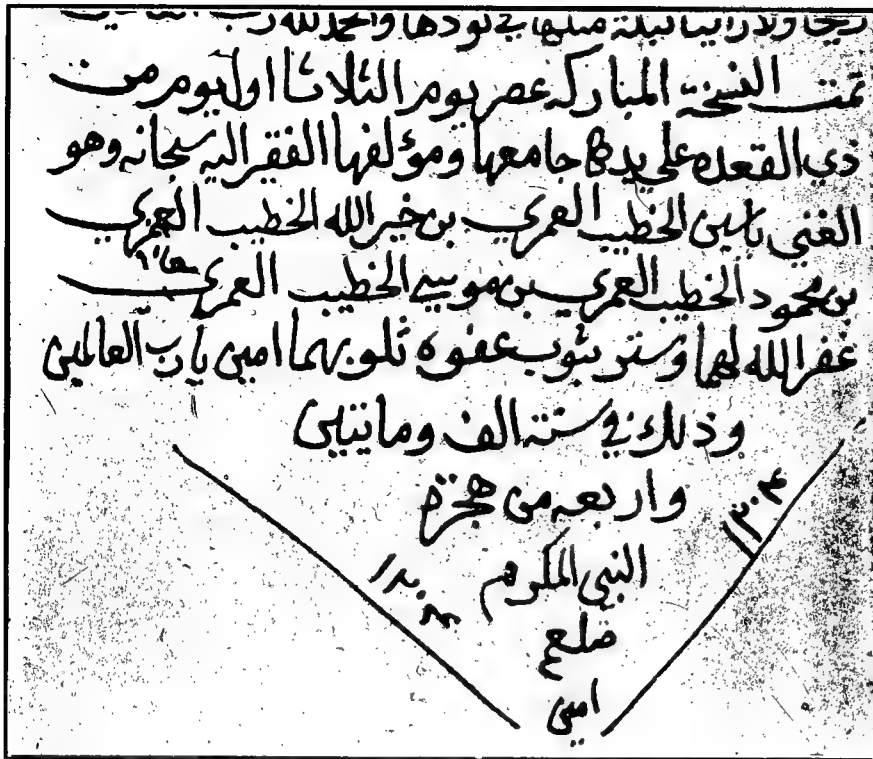 ريحا ولا رأينا ليلة مثلها في نودها والحمد لله رب العالمين
تمت النسخة المباركه عصر يوم الثلاثا اول يوم من
ذي القعده على يد جامعها ومؤلفها الفقر اليه سبحانه وهو
الغني ياسين الخطيب العمري بن خير الله الخطيب العمري
بن محمود الخطيب العمري بن موسي الخطيب العمري
غفر الله لهما وستر بثوب عفوه ذلوبهما امين يا رب العالمين
وذلك في سنة الف ومايتين
واربعه من هجرة
النبي المكرم
صلعم
امين
١٢٠٤
١٢٠٤